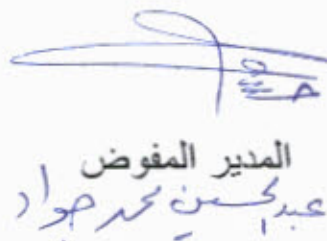 المدير المفوض
عبدالحسين محمد جواد